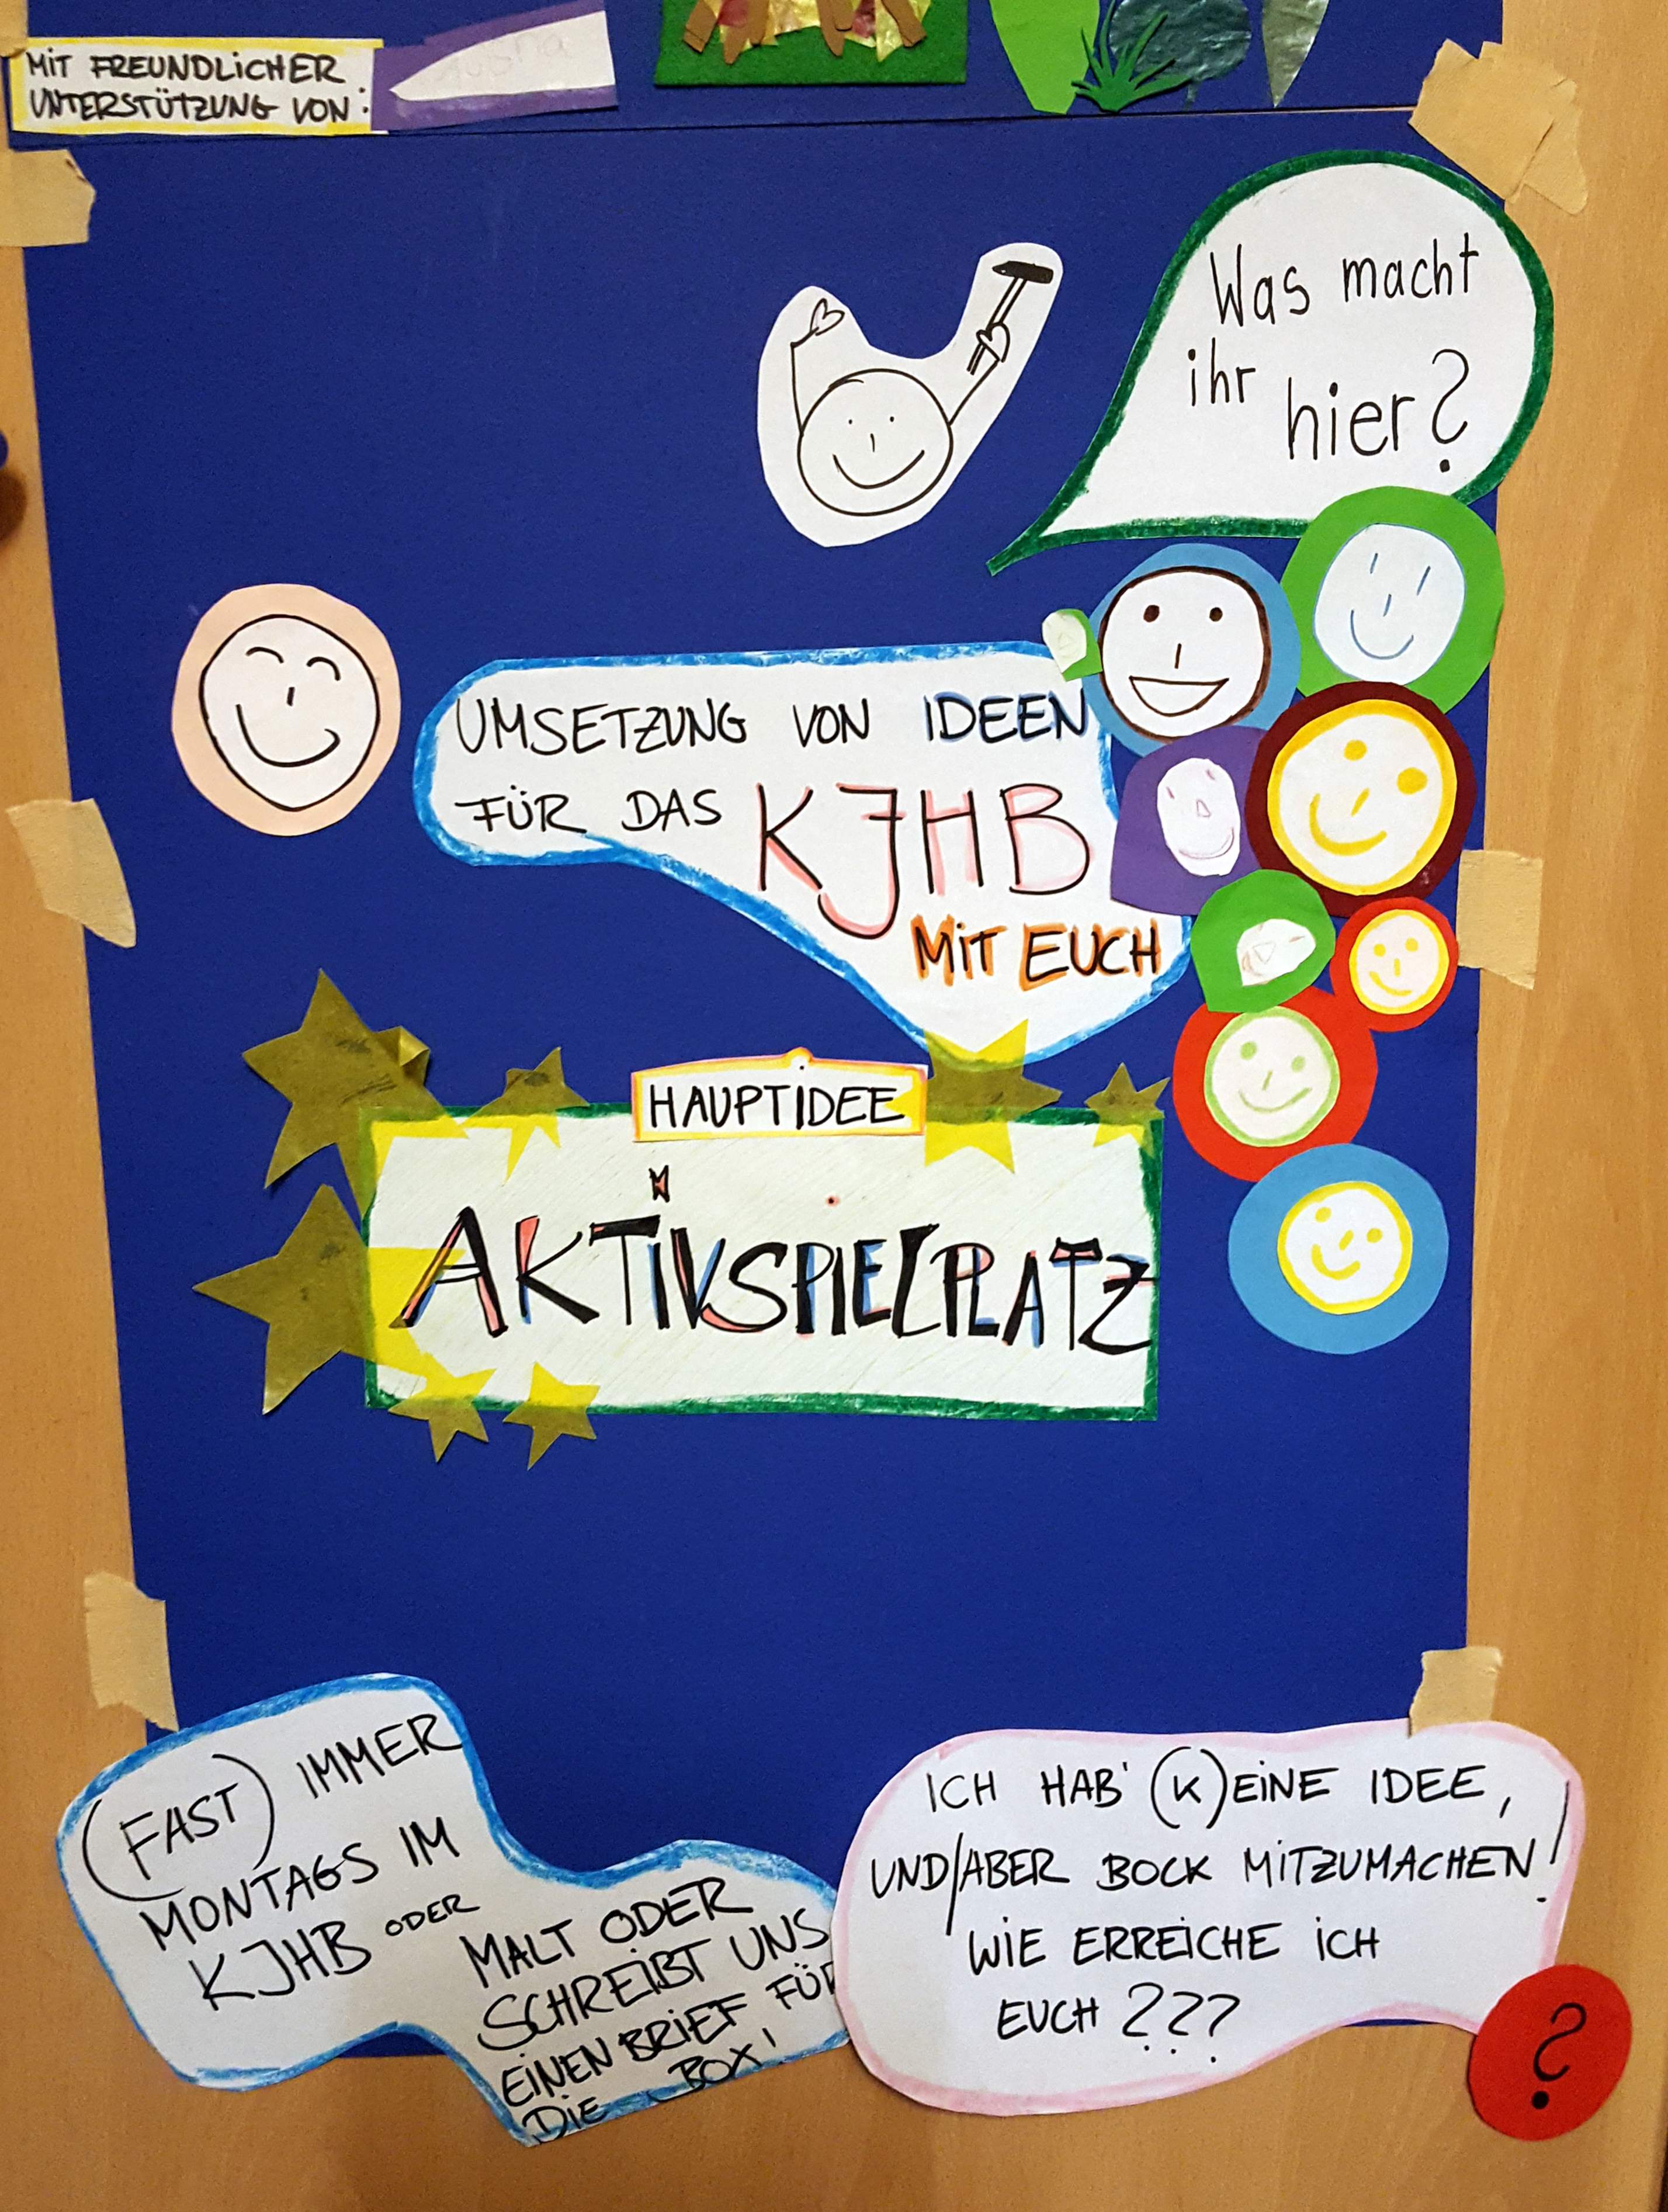 MIT FREUNDLICHER
UNTERSTÜTZUNG VON:
Was macht
ihr hier?
UMSETZUNG VON IDEEN
FÜR DAS KJHB
MIT EUCH
HAUPTIDEE
AKTIVSPIELPLATZ
(FAST) IMMER
MONTAGS IM
KJHB ODER
MALT ODER
SCHREIBT UNS
EINEN BRIEF FÜR
DIE BOX!
ICH HAB' (K)EINE IDEE,
UND/ABER BOCK MITZUMACHEN!
WIE ERREICHE ICH
EUCH ???
?